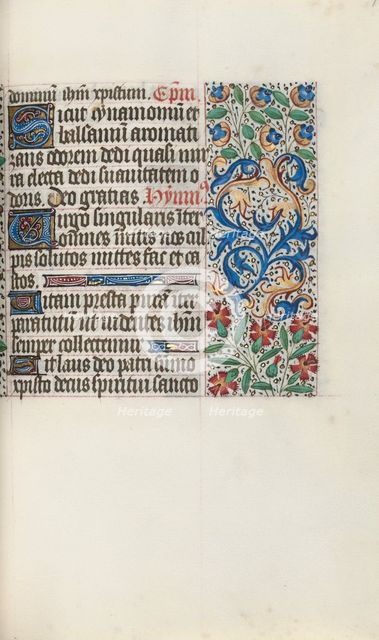 dominum ihm xpistum. Epm
Sicut cynamomū et
balsamū aromati
zans odorem dedi quasi mir
ra electa dedi suauitatem o
doris. Deo gratias Hymn9
Uirgo singularis inter
omnes mitis nos cul
pis solutos mittes fac et ca
stos
Uitam presta purā iter
para tutū ut uidentes ihm
semper collectemur
Sit laus deo patri sumo
xpisto decus spiritui sancto
Heritage
Heritage